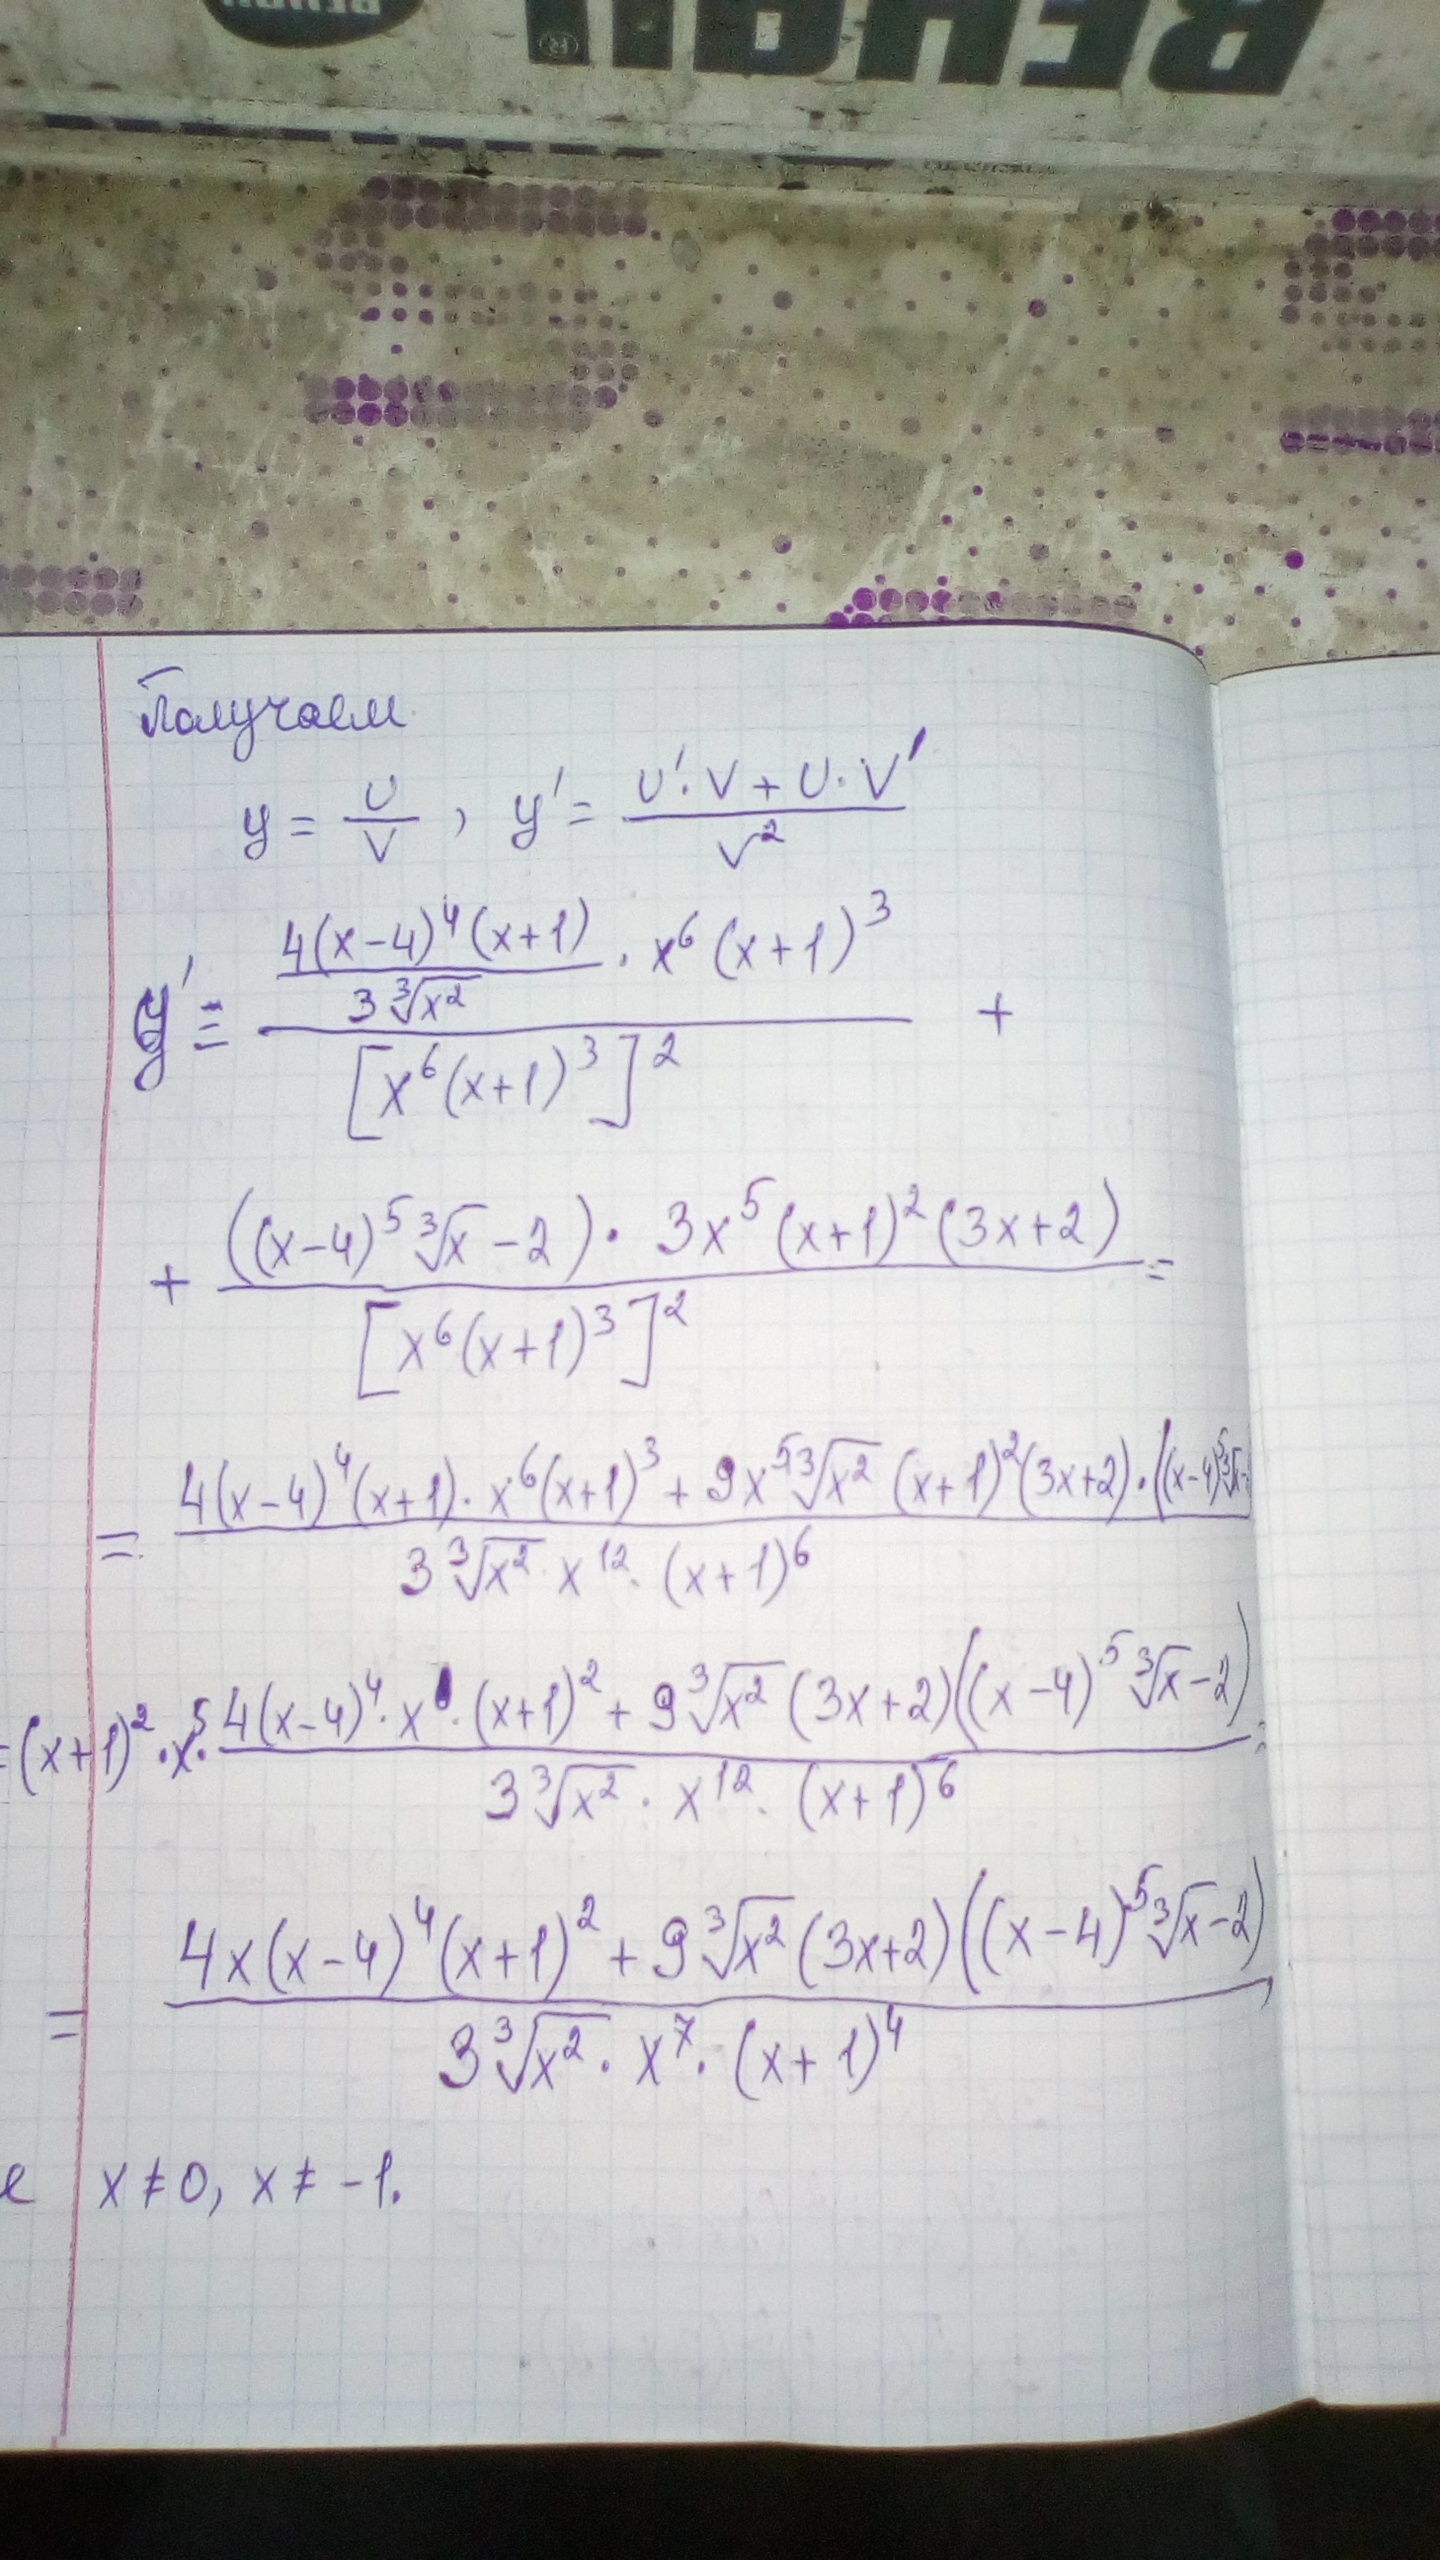 REHAU
®
REHAU
Получаем
y = U/V , y' = (U'·V + U·V')/V²
y' = (4(x-4)⁴(x+1)/(3∛x²) · x⁶(x+1)³)/[x⁶(x+1)³]² +
+ (((x-4)⁵∛x-2)· 3x⁵(x+1)²(3x+2))/[x⁶(x+1)³]² =
= (4(x-4)⁴(x+1)·x⁶(x+1)³+9x⁵∛x²(x+1)²(3x+2)·((x-4)⁵∛x-)/(3∛x²·x¹²·(x+1)⁶)
=(x+1)²·x⁵·(4(x-4)⁴·x·(x+1)²+9∛x²(3x+2)((x-4)⁵∛x-2))/(3∛x²·x¹²·(x+1)⁶) =
= (4x(x-4)⁴(x+1)²+9∛x²(3x+2)((x-4)⁵∛x-2))/(3∛x²·x⁷·(x+1)⁴),
е x≠0, x≠-1.